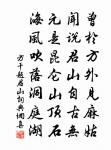 曾於方外見麻姑
聞說君山自古無
元是崑崙山頂石
海風吹落洞庭湖
方干題君山詞典網書